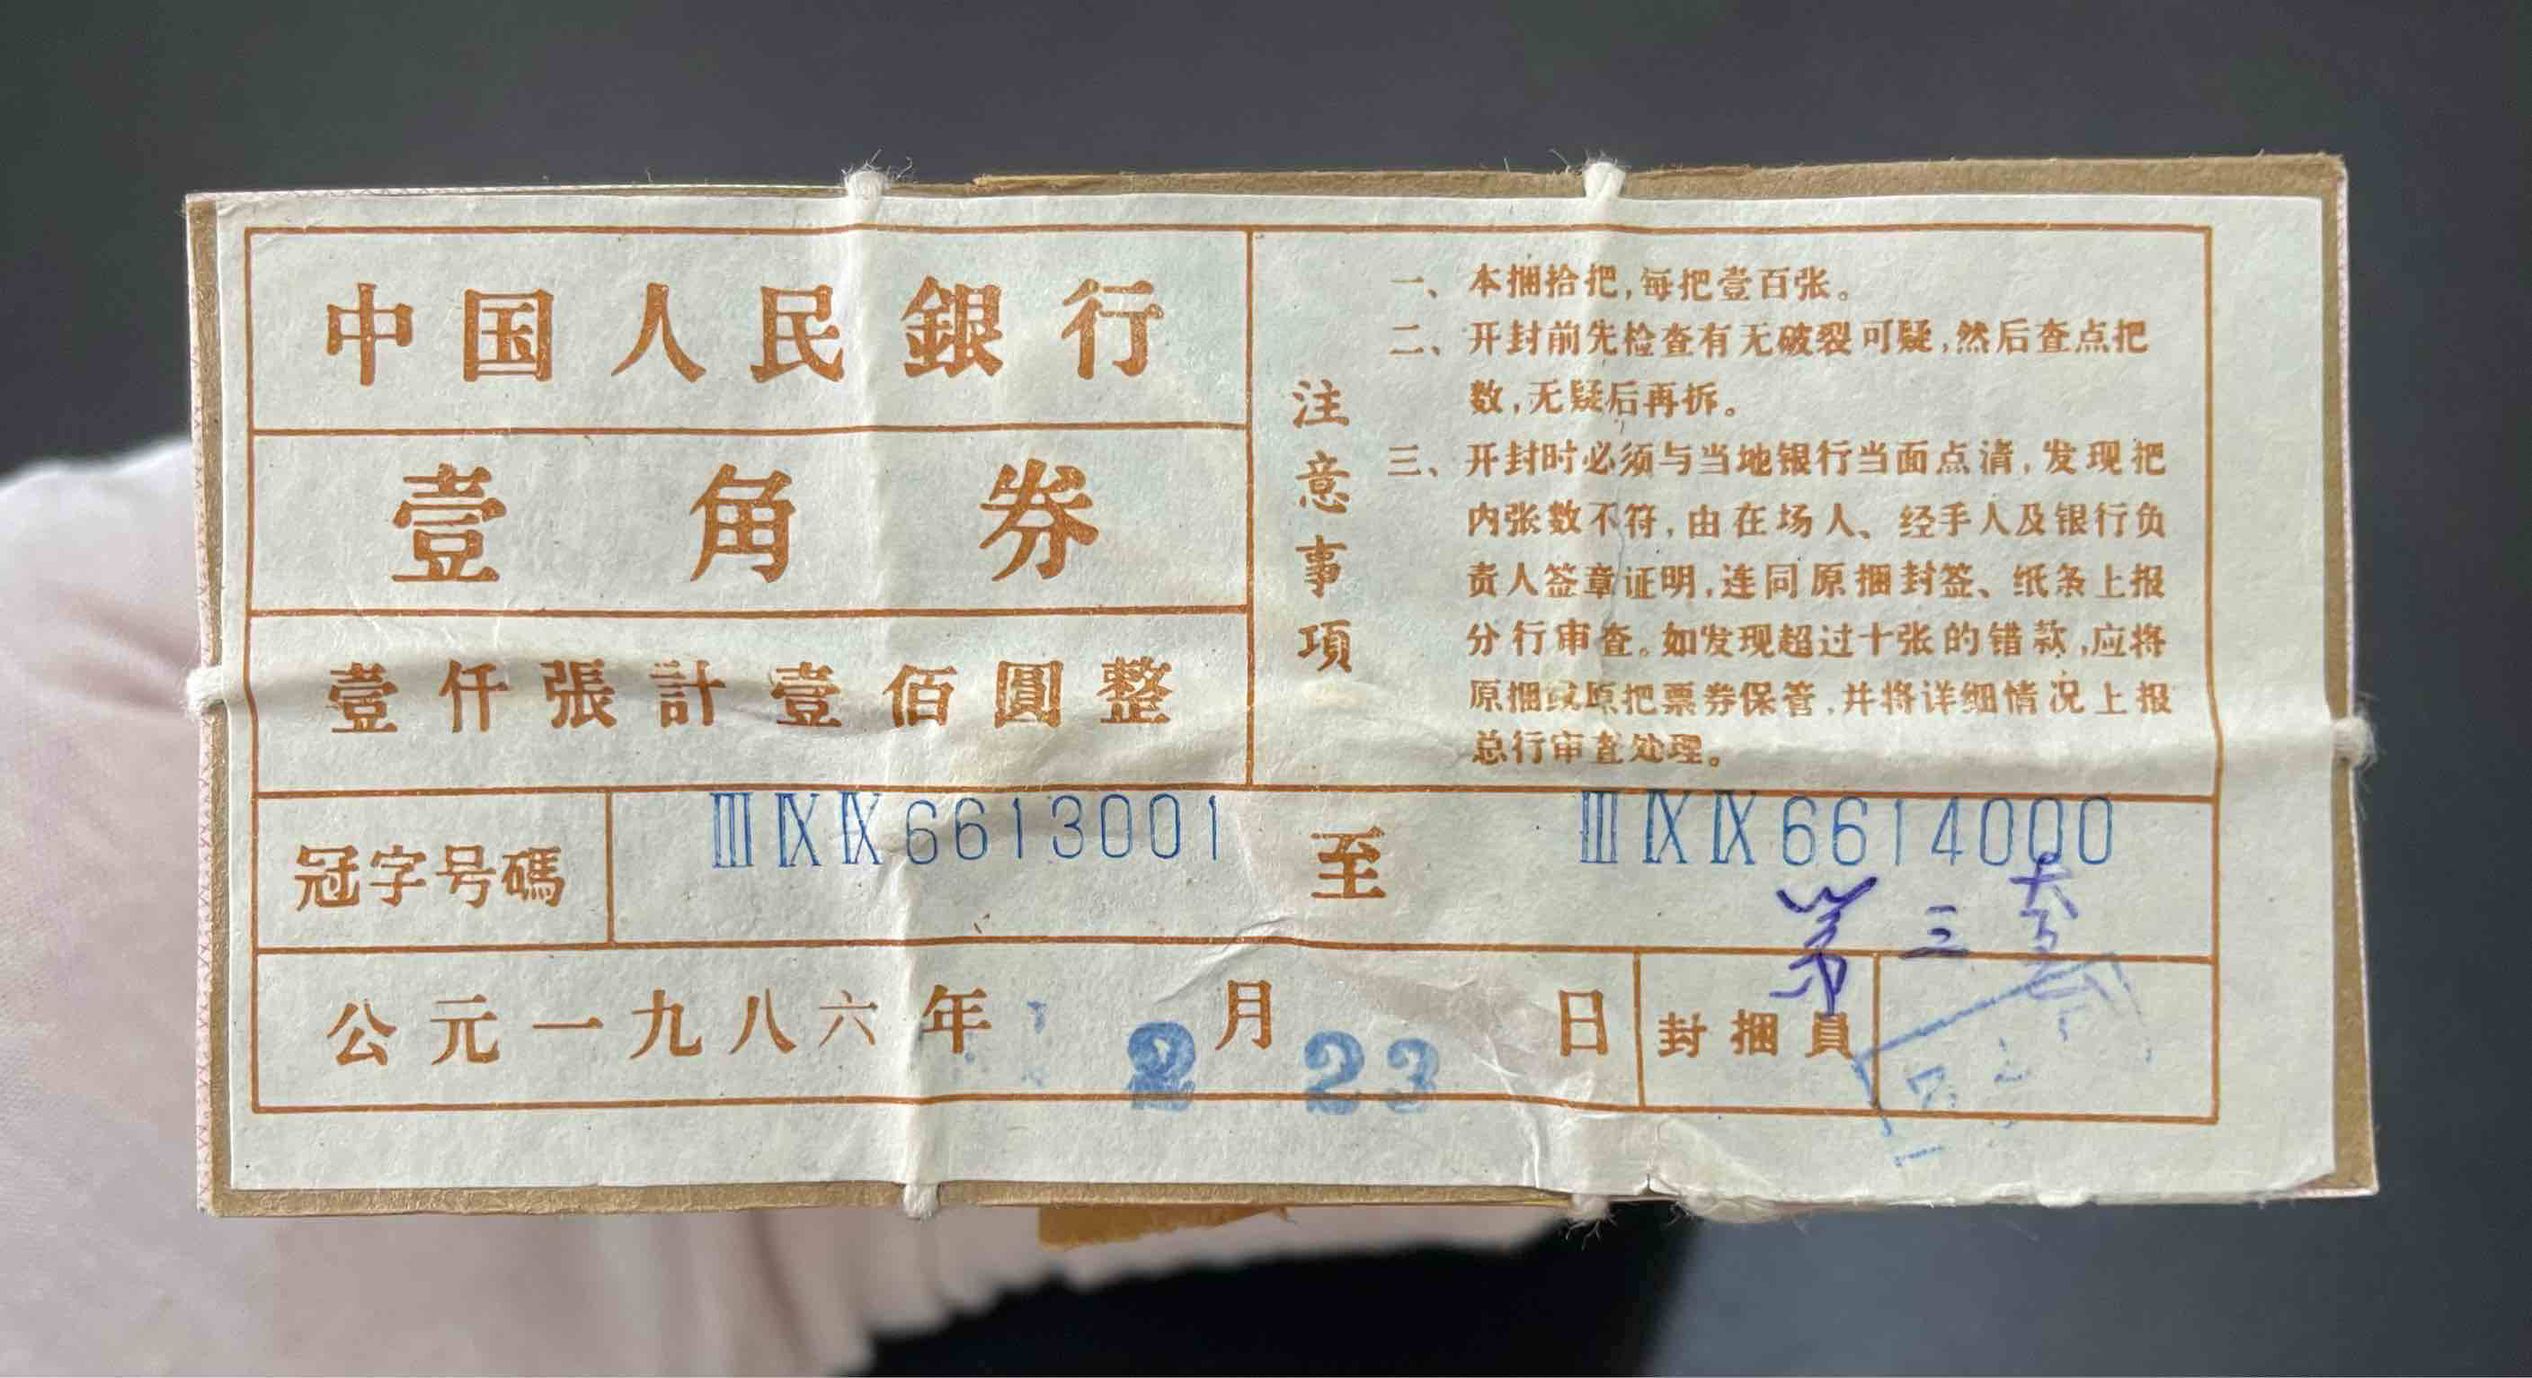 中国人民銀行
壹角券
壹仟張計壹佰圓整
注意事項
一、本捆拾把,每把壹百张。
二、开封前先检查有无破裂可疑,然后查点把
数,无疑后再拆。
三、开封时必须与当地银行当面点清,发现把
内张数不符,由在场人、经手人及银行负
责人签章证明,连同原捆封签、纸条上报
分行审查。如发现超过十张的错款,应将
原捆或原把票券保管,并将详细情况上报
总行审查处理。
冠字号碼 ⅢⅨⅨ6613001 至 ⅢⅨⅨ6614000
第三套
公元一九八六年 2 月 23 日 封捆員